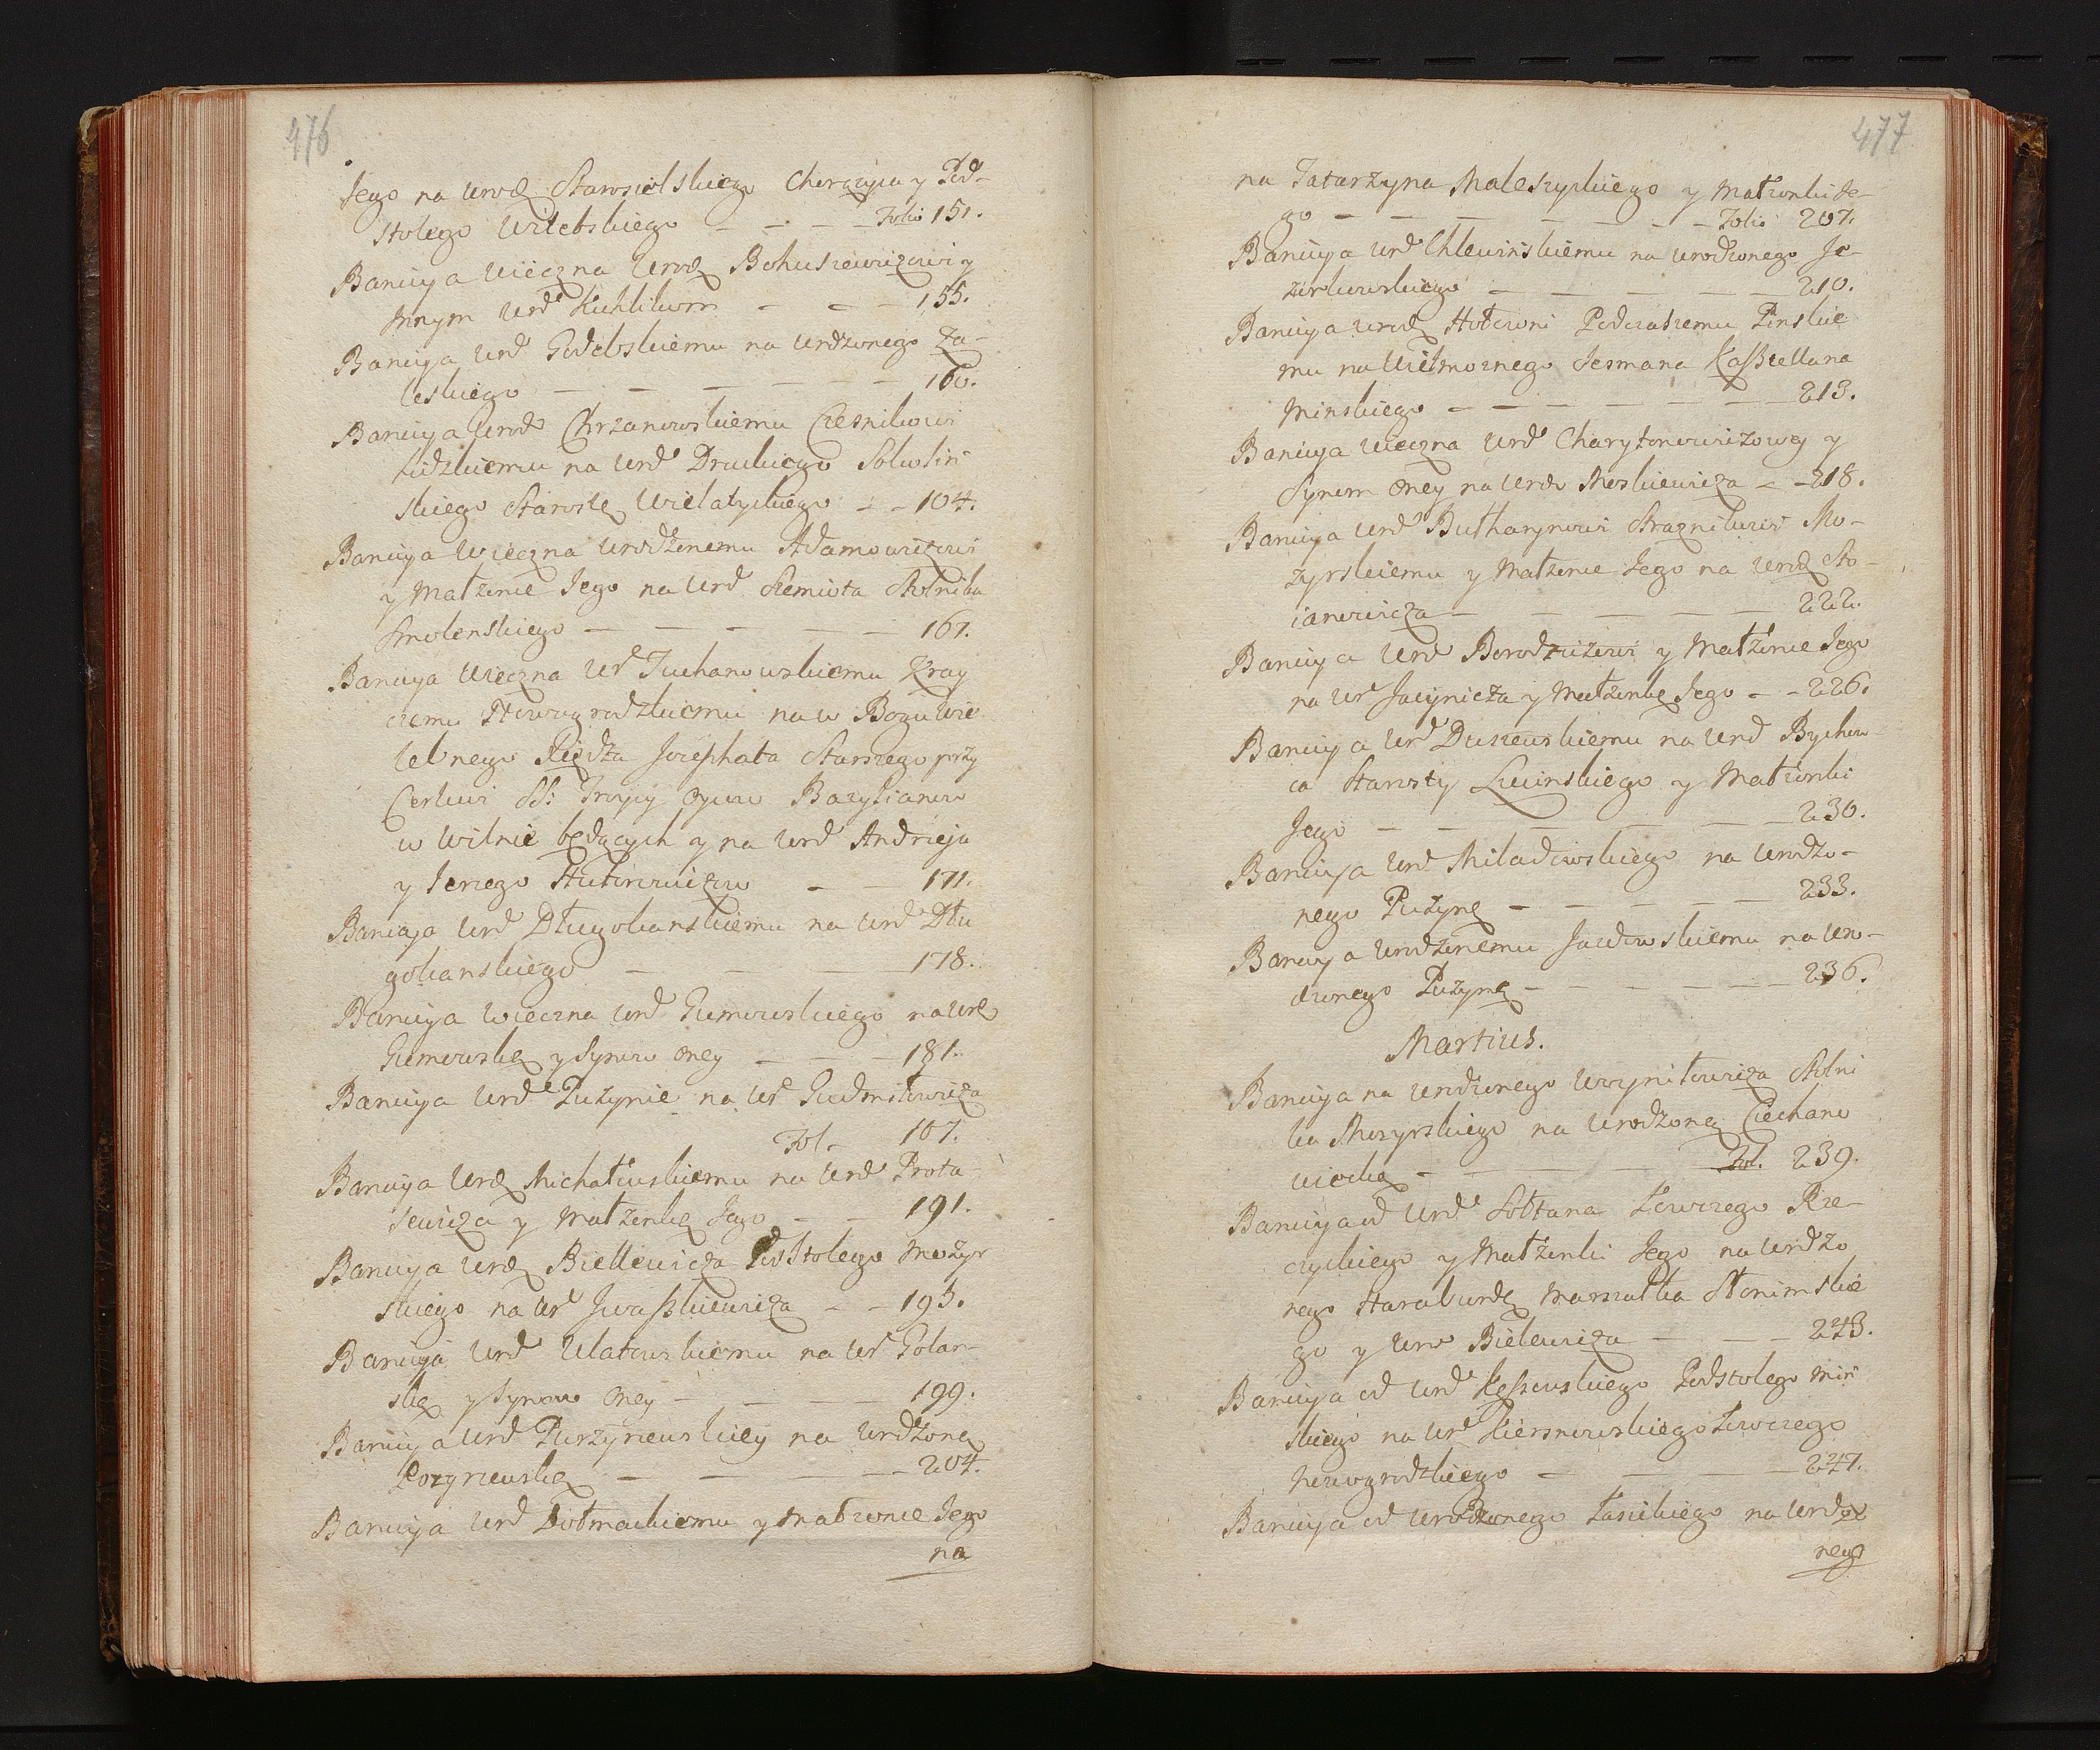 476
Jego na Urodz Starosielskiego Chorążyca y Pod-
stolego Witebskiego — — — — Folio 151.
Banicya Wieczna Urodz Bohuszewiczowi y
Innym Urd Kuhlikom — — — 155.
Banicya Urd Godebskiemu na Urdzonego Za-
leskiego — — — — — — 160.
Banicya Urod Chrzanowskiemu Czesnikowi
Lidzkiemu na Urd Druckiego Sokoliń
skiego Starostę Wielatyckiego — — 164.
Banicya Wieczna Urodzonemu Adamowiczowi
y Małżenie Jego na Urd Szemiota Stolnika
Smolenskiego — — — — — 167.
Banicya Wieczna Ur Juchanowskiemu Kray
czemu Nowogrodzkiemu na w Bogu Wie
lebnego Xiędza Jozephata Starszego przy
Cerkwi SS: Troycy Oycow Bazylianow
w Wilnie będących y na Urd Andrzeja
y Jerzego Hutorowiczow — — 171.
Banicya Urd Długokanskiemu na Urd Dłu
gokanskiego — — — 178.
Banicya Wieczna Urd Gumowskiego na Urd
Gumowskę y Synow Oney — — — 181.
Banicya Urd Puzynie na Ur Gudmitowicza
Fol. 187.
Banicya Urdz Michałowskiemu na Urd Prota-
sewicza y Małżenkę Jego — — 191.
Banicya Urdz Biellewicza Podstolego Mozyr
skiego na Ur Iwaszkiewicza — — 195.
Banicya Urd Ulatowskiemu na Ur Golan-
skę y Synow Oney — — — — 199.
Banicya Urd Purzyniewskiey na Urdzoną
Pozyrzewskę — — — — 204.
Banicya Urd Dołmackiemu y Małzonce Jego
na
477
na Tatarzyna Maleszyckiego y Małzonki Je-
go — — — — — — — Folio 207.
Banicya Urd Chlewinskiemu na Urodzonego Je-
zierkowskiego — — — — — 210.
Banicya Urodz Hołowni Podczaszemu Pinskie
mu na Wielmoznego Jesmana Kasztellana
Minskiego — — — — — — — 213.
Banicya Wieczna Urd Charytonowiczowey y
Synom Oney na Urdo Moskiewicza — — 218.
Banicya Urd Butharynowi Straznikowi Mo-
zyrskiemu y Małzonce Jego na Urdz Sto-
ianowicza — — — — 222.
Banicya Urd Borodziczowi y Małżonce Jego
na Ur Jacynicza y Małżenkę Jego — — 226.
Banicya Urd Duszewskiemu na Urd Bychow-
ca Starosty Lwinskiego y Małzonki
Jego — — — — — — 230.
Banicya Urd Miładowskiego na Urodzo-
nego Puzynę — — — — — 233.
Banicya Urodzonemu Jazdowskiemu na Uro-
dzonego Puzynę — — — — — 236.
Martius.
Banicya na Urodzonego Woyniłowicza Stolni
ka Mozyrskiego na Urodzoną Ciechano
wieckę — — — — Fol. 239.
Banicya od Urd Sołtana Łowczego Rze-
czyckiego y Małżenki Jego na Urdzo
nego Haraburdę Marszałka Słonimskie
go y Urod Bielewicza — — — 243.
Banicya od Urd Keszewskiego Podstolego Miń
skiego na Ur Kiersnowskiego Łowczego
Nowogrodzkiego — — — — 247.
Banicya od Urodzonego Łasickiego na Urdzo
nego